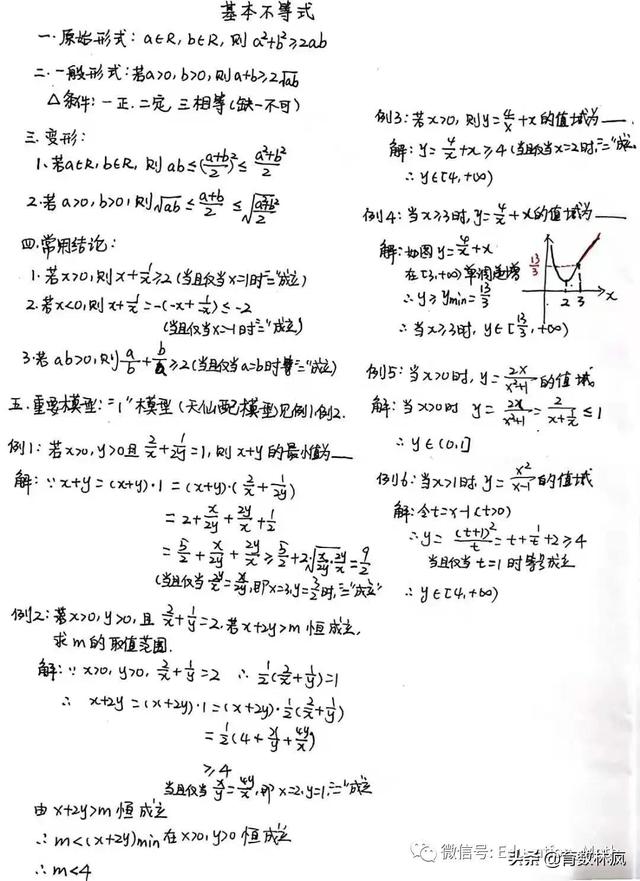 基本不等式
一.原始形式: a∈R, b∈R, 则 a²+b²≥2ab
二.一般形式: 若a>0, b>0, 则a+b≥2√ab
△条件: 一正. 二定. 三相等 (缺一不可)
三.变形:
1.若a∈R, b∈R, 则 ab≤(a+b/2)²≤(a²+b²)/2
2.若 a>0, b>0, 则√ab≤(a+b)/2≤√((a²+b²)/2)
四.常用结论:
1.若x>0, 则x+1/x≥2 (当且仅当x=1时"="成立)
2.若x<0, 则x+1/x=-(-x+1/x)≤-2
(当且仅当x=-1时"="成立)
3.若ab>0, 则a/b+b/a≥2 (当且仅当a=b时"="成立)
五.重要模型: "1"模型 (天仙配模型见例1例2.
例1: 若x>0, y>0且 2/x+1/2y=1, 则x+y的最小值为___
解: ∵x+y=(x+y)·1=(x+y)·(2/x+1/2y)
=2+x/2y+2y/x+1/2
=5/2+x/2y+2y/x≥5/2+2·√(x/2y·2y/x)=9/2
(当且仅当2y/x=x/2y, 即x=3, y=3/2时, "="成立"
例2: 若x>0, y>0, 且 2/x+1/y=2. 若x+2y>m 恒成立,
求m的取值范围.
解: ∵x>0, y>0, 2/x+1/y=2 ∴1/2(2/x+1/y)=1
∴ x+2y=(x+2y)·1=(x+2y)·1/2(2/x+1/y)
=1/2(4+x/y+4y/x)
≥4
当且仅当x/y=4y/x, 即x=2, y=1, "="成立
由 x+2y>m 恒成立
∴ m<(x+2y)min 在x>0, y>0 恒成立
∴ m<4
例3: 若x>0, 则y=4/x+x的值域为___.
解: y=4/x+x≥4 (当且仅当x=2时, "="成立
∴ y∈[4, +∞)
例4: 当x≥3时, y=4/x+x的值域为___
解: 如图y=4/x+x
在[3, +∞)单调递增
∴y≥ymin=13/3
∴当x≥3时, y∈[13/3, +∞)
13/3
2 3 x
例5: 当x>0时, y=2x/(x²+1)的值域
解: 当x>0时 y=2x/(x²+1)=2/(x+1/x)≤1
∴ y∈(0,1]
例6: 当x>1时, y=x²/(x-1)的值域
解: 令t=x-1 (t>0)
∴y=(t+1)²/t=t+1/t+2≥4
当且仅当 t=1 时等号成立
∴ y∈[4, +∞)
微信号: Education-Math
头条 @育数林疯